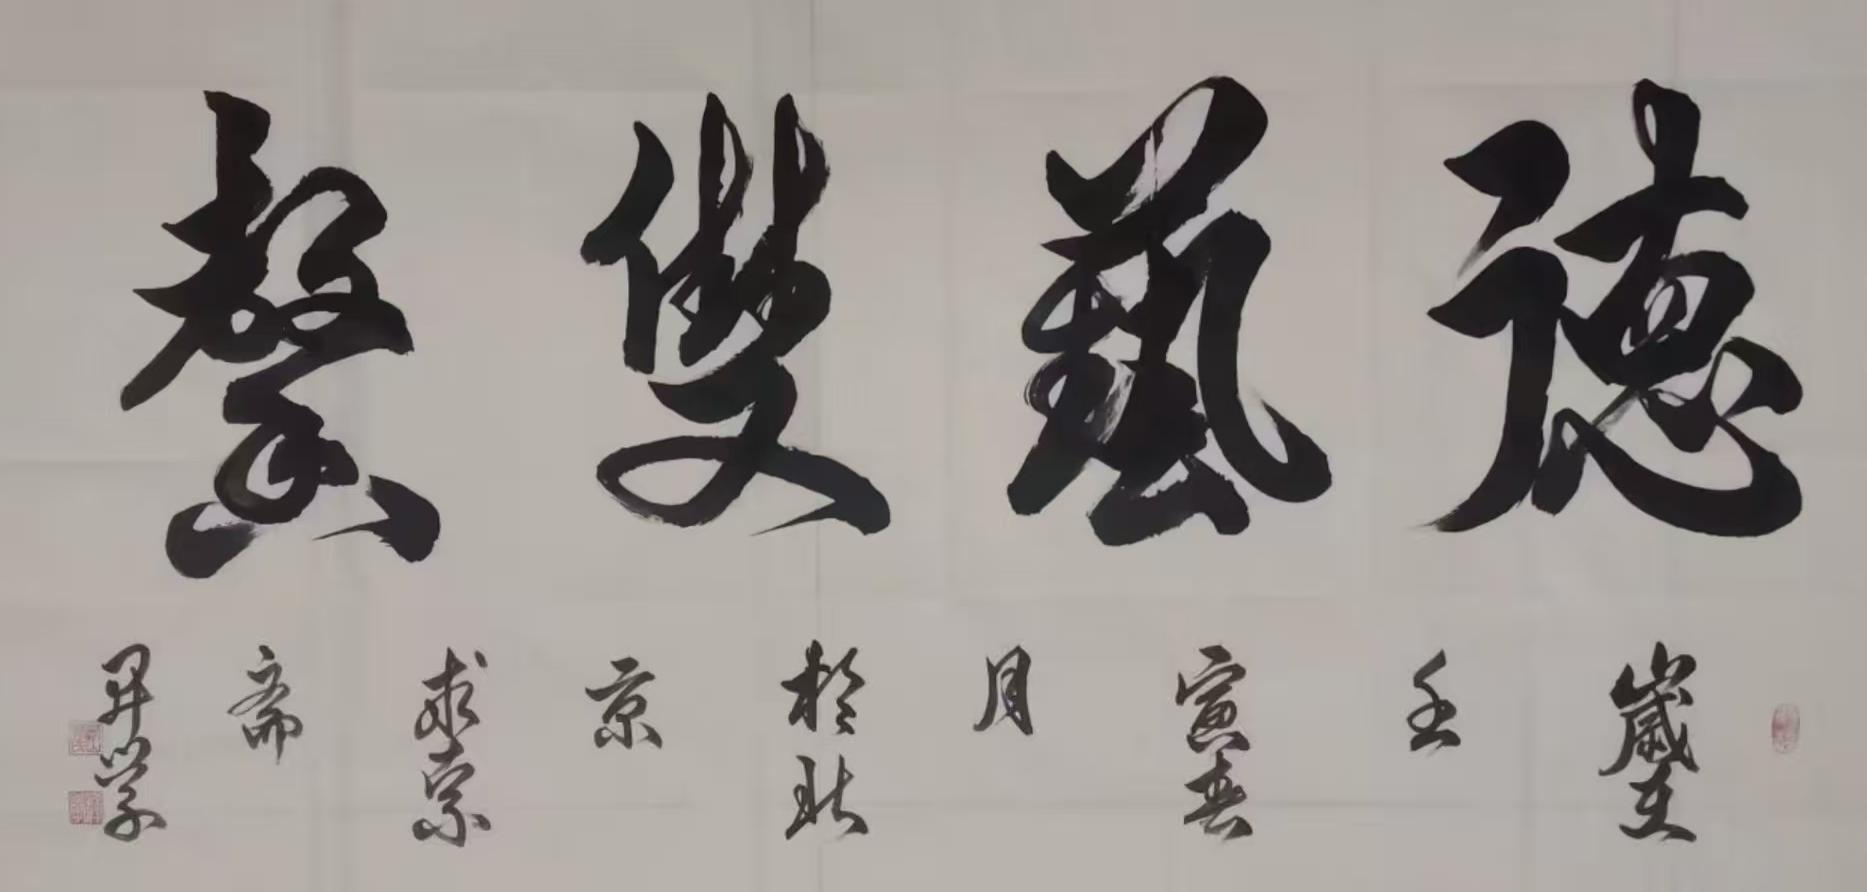 德藝雙馨
歲在
壬
寅春
月
於北
京
求宗
斋
昇学